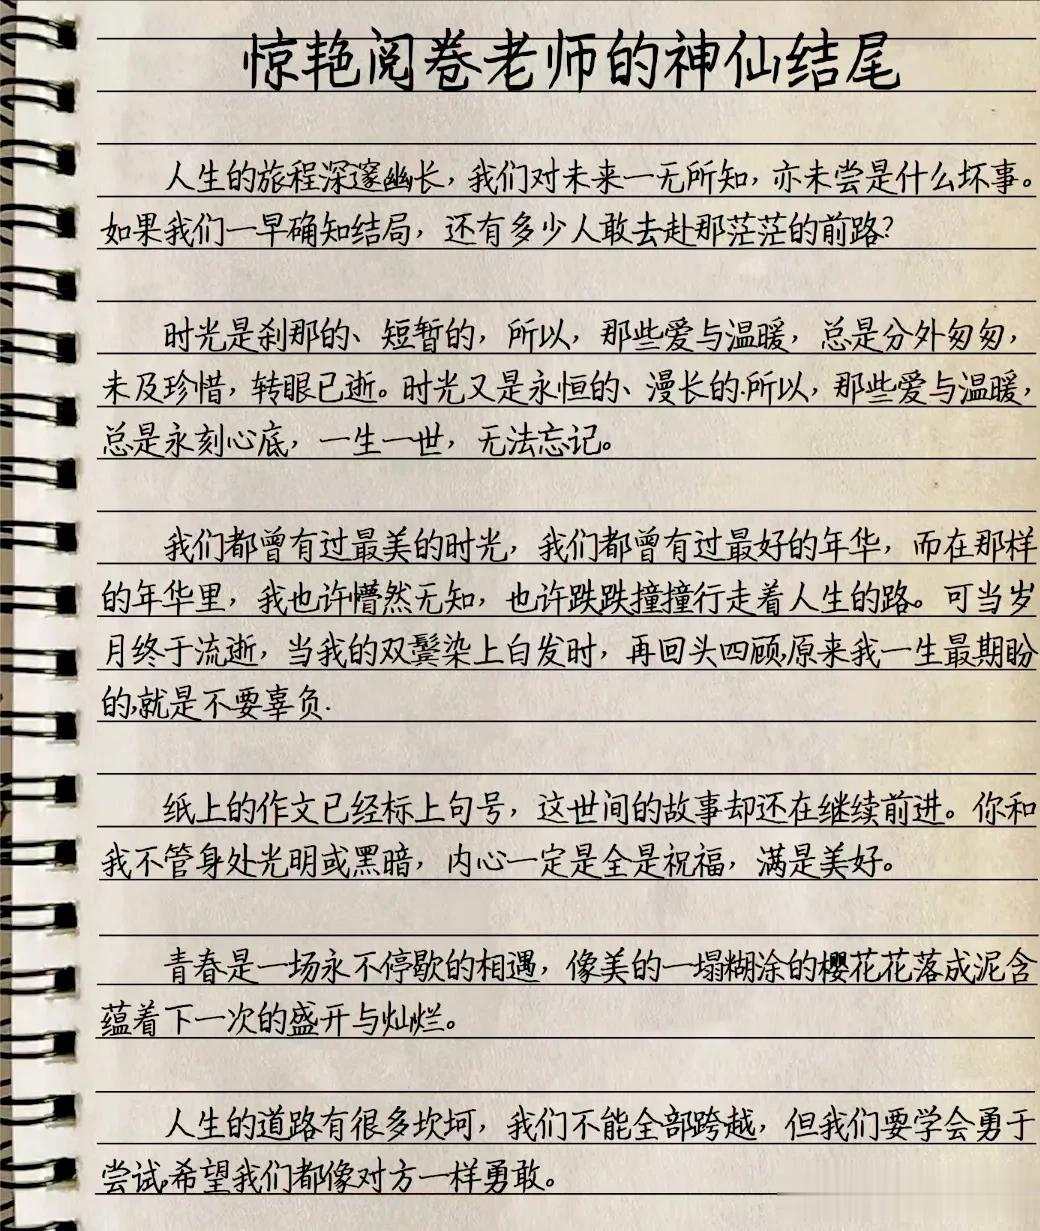 惊艳阅卷老师的神仙结尾
人生的旅程深邃幽长，我们对未来一无所知，亦未尝是什么坏事。
如果我们一早确知结局，还有多少人敢去赴那茫茫的前路？
时光是刹那的、短暂的，所以，那些爱与温暖，总是分外匆匆，
未及珍惜，转眼已逝。时光又是永恒的、漫长的.所以，那些爱与温暖，
总是永刻心底，一生一世，无法忘记。
我们都曾有过最美的时光，我们都曾有过最好的年华，而在那样
的年华里，我也许懵然无知，也许跌跌撞撞行走着人生的路。可当岁
月终于流逝，当我的双鬓染上白发时，再回头四顾,原来我一生最期盼
的,就是不要辜负.
纸上的作文已经标上句号，这世间的故事却还在继续前进。你和
我不管身处光明或黑暗，内心一定是全是祝福，满是美好。
青春是一场永不停歇的相遇，像美的一塌糊涂的樱花花落成泥含
蕴着下一次的盛开与灿烂。
人生的道路有很多坎坷，我们不能全部跨越，但我们要学会勇于
尝试,希望我们都像对方一样勇敢。